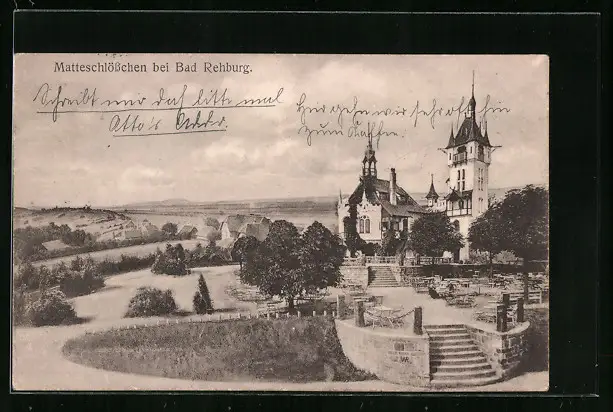 Matteschlößchen bei Bad Rehburg.
Schreibt mir doch bitte mal
Otto's Adr.
Hier gehen wir sehr oft hin
zum Kaffee.